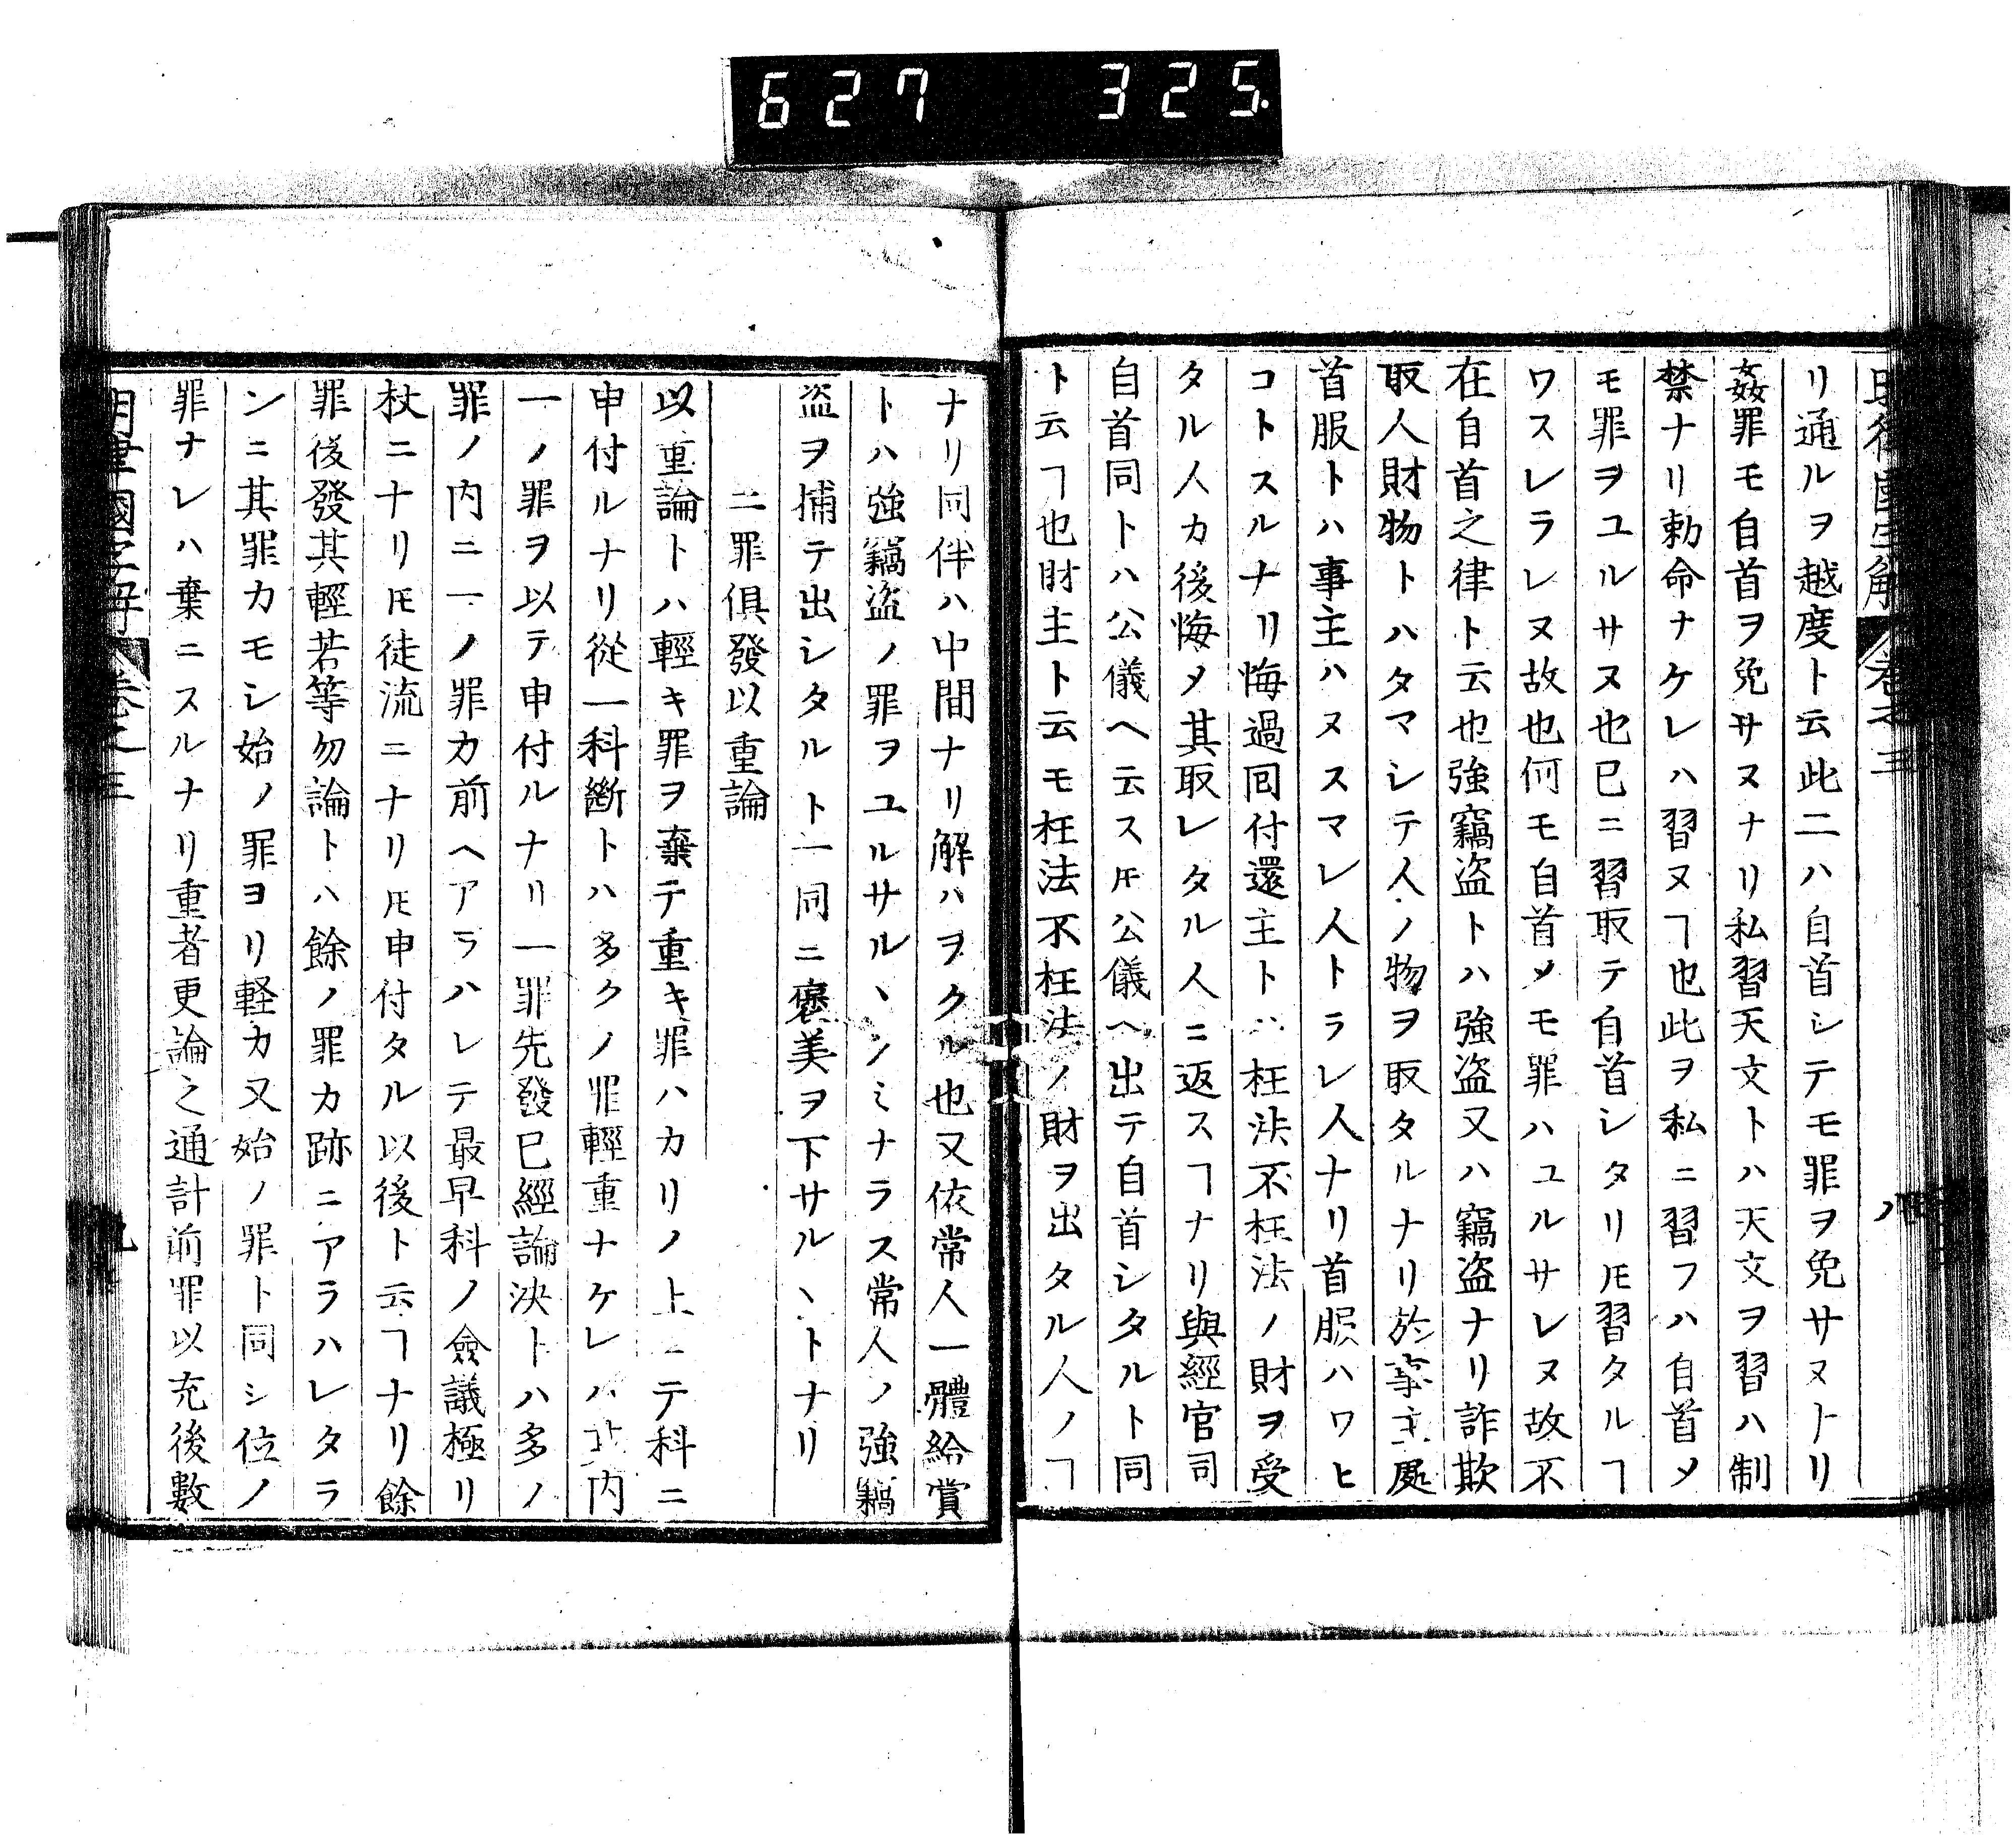 627 325
リ通ルヲ越度ト云此二ハ自首シテモ罪ヲ免サヌトリ
姦罪モ自首ヲ免サヌナリ私習天文トハ天文ヲ習ハ制
禁ナリ勅命ナケレハ習ヌヿ也此ヲ私ニ習フハ自首メ
モ罪ヲユルサヌ也已ニ習取テ自首シタリ𪜈習タルヿ
ワスレラレヌ故也何モ自首メモ罪ハユルサレヌ故不
在自首之律ト云也強竊盗トハ強盗又ハ竊盗ナリ詐欺
取人財物トハタマシテ人ノ物ヲ取タルナリ於事主處
首服トハ事主ハヌスマレ人トラレ人ナリ首服ハワヒ
コトスルナリ悔過回付還主トハ枉法不枉法ノ財ヲ受
タル人カ後悔メ其取レタル人ニ返スヿナリ與經官司
自首同トハ公儀ヘ云ス𪜈公儀ヘ出テ自首シタルト同
ト云ヿ也財主ト云モ枉法不枉法ノ財ヲ出タル人ノヿ
ナリ同伴ハ中間ナリ解ハヲクル也又依常人一體給賞
トハ強竊盗ノ罪ヲユルサルヽノミナラス常人ノ強竊
盗ヲ捕テ出シタルト一同ニ褒美ヲ下サルヽトナリ
二罪俱發以重論
以重論トハ輕キ罪ヲ棄テ重キ罪ハカリノ上ニテ科ニ
申付ルナリ從一科斷トハ多クノ罪輕重ナケレハ其内
一ノ罪ヲ以テ申付ルナリ一罪先發已經論決トハ多ノ
罪ノ内ニ一ノ罪カ前ヘアラハレテ最早科ノ僉議極リ
杖ニナリ𪜈徒流ニナリ𪜈申付タル以後ト云ヿナリ餘
罪後發其輕若等勿論トハ餘ノ罪カ跡ニアラハレタラ
ンニ其罪カモシ始ノ罪ヨリ軽カ又始ノ罪ト同シ位ノ
罪ナレハ棄ニスルナリ重者更論之通計前罪以充後數